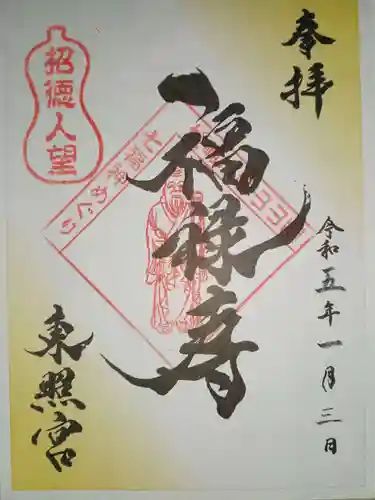 奉拝
令和五年一月三日
福禄寿
七福神めぐり
招徳人望
東照宮